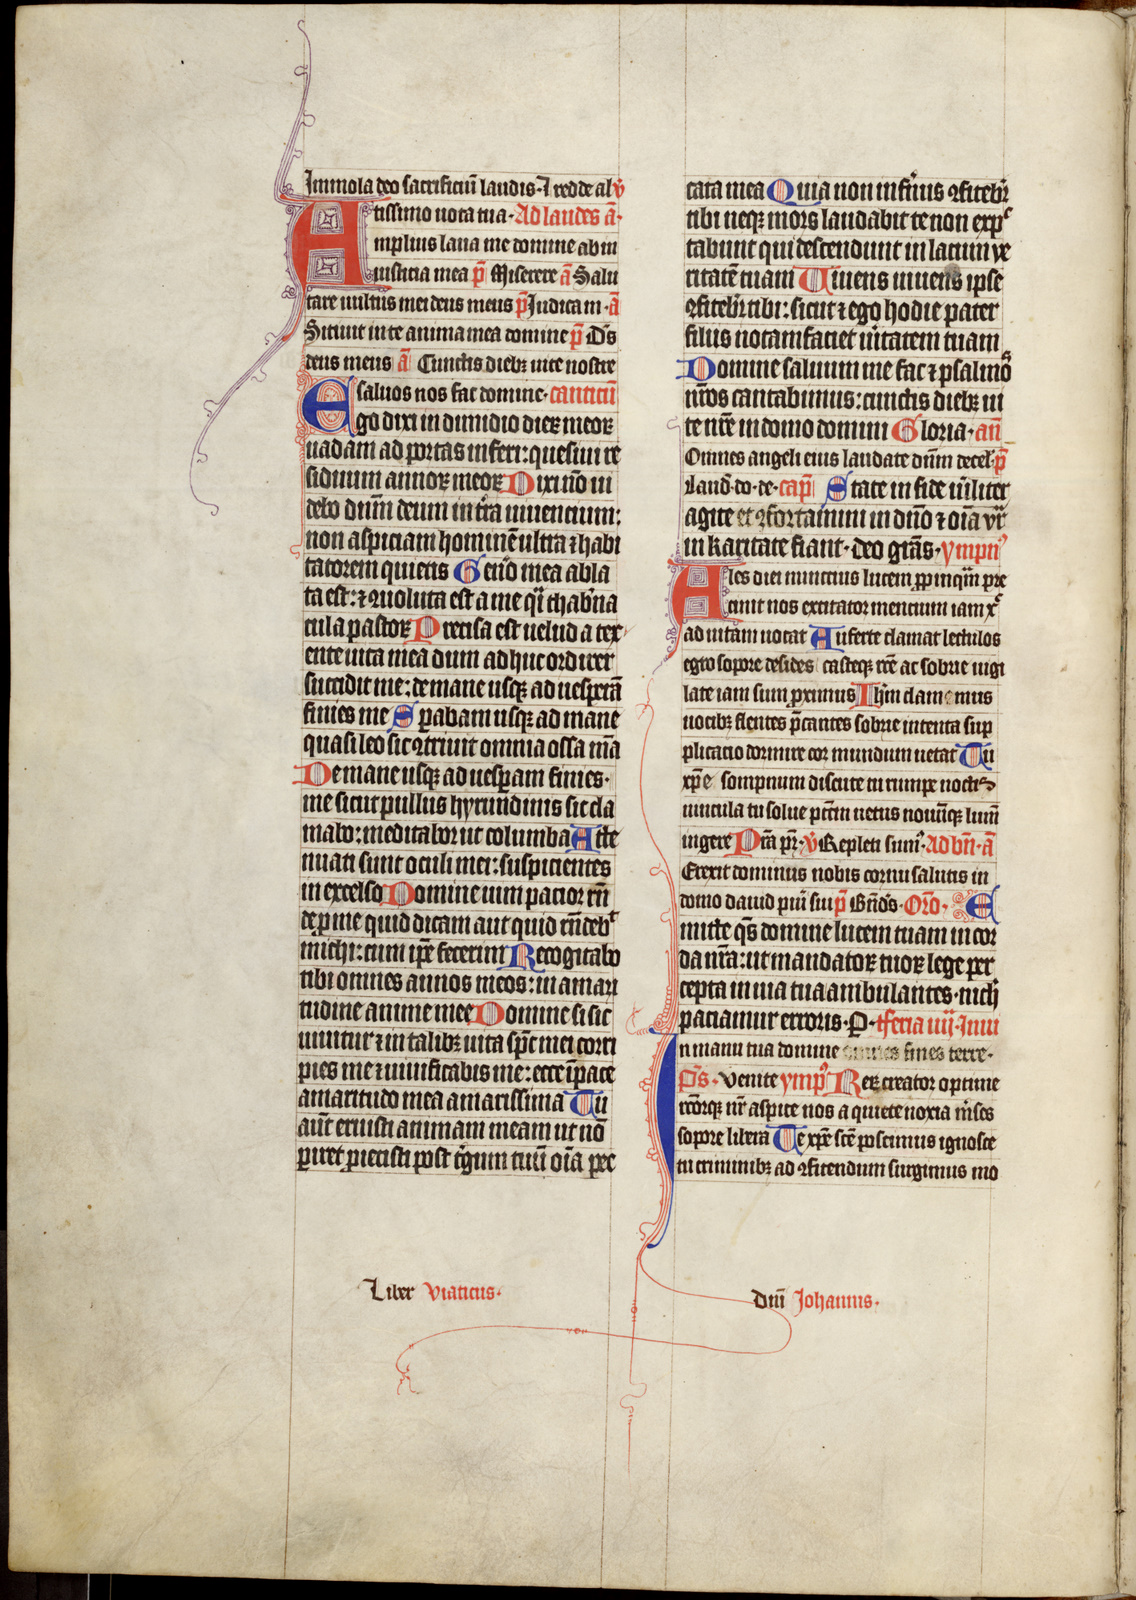 Immola deo sacrificiū laudis· ⁊ redde al v̄
tissimo uota tua· Ad laudes ā·
Amplius laua me domine ab in
iusticia mea p̄ Miserere ā Salu
tare uultus mei deus meus p̄ Iudica m· ā
Sitiuit in te anima mea domine p̄ Ds̄
deus meus ā Cunctis diebꝫ uite nostre
saluos nos fac domine· canticū
Ego dixi in dimidio dieꝝ meoꝝ
uadam ad portas inferi: quesiui re
siduum annoꝝ meoꝝ Dixi nō ui
debo dūm deum in tr̄a uiuencium:
non aspiciam hominē ultra ⁊ habi
tatorem quietis Geñō mea abla
ta est: ⁊ ꝯuoluta est a me q̄i th̄abr̄na
cula pastoꝝ Precisa est uelud a tex
ente uita mea dum adhuc ordirer
succidit me: de mane usqꝫ ad uesperā
finies me Sꝑabam usqꝫ ad mane
quasi leo sic ꝯtriuit omnia ossa m̄a
De mane usqꝫ ad uesꝑam finies·
me sicut pullus hyrundinis sic cla
mabo: meditabor ut columba Atte
nuati sunt oculi mei: suspicientes
in excelso Domine uim pacior rn̄
de ꝓ me quid dicam aut quid rn̄debᵗ
michi: cum ip̄e fecerim Recogitabo
tibi omnes annos meos: in amari
tudine anime mee Domine si sic
uiuitur ⁊ in talibꝫ uita sp̄c mei corri
pies me ⁊ uiuificabis me: ecce ī pace
amaritudo mea amarissima Tu
aūt eruisti animam meam ut nō
ꝑiret ꝓiecisti post t̄gum tuū oīa pec
cata mea Quia non infīnus ꝯfitebr̄
tibi neqꝫ mors laudabit te non expᶜ
tabunt qui descendunt in lacum ve
ritatē tuam Viuens uiuens ipse
ꝯfitebr̄ tibi: sicut ⁊ ego hodie pater
filiis notam faciet uītatem tuam
Domine saluum me fac ⁊ psalmoˢ
nr̄os cantabimus: cunctis diebꝫ ui
te nr̄e in domo domini Gloria· an̄
Omnes angeli eius laudate dn̄m de cel· p̄
Laud· do· de· cap̄ State in fide uīliter
agite et ꝯfortamini in dn̄o ⁊ oīa vr̄
in karitate fiant· deo gr̄as· ympn̄
Ales diei nuncius lucem ꝓpinqūm pre
cinit nos excitator mencium iam xᶜ
ad uitam uocat Auferte clamat lectulos
egro sopore desides casteqꝫ rc̄e ac sobrie uigi
late iam sum ꝓximus Ihm̄ clamemus
uocibꝫ flentes p̄cantes sobrie intenta sup
plicacio dormire cor mundum uetat Tu
xp̄e sompnum discute tu rumpe noctis
uincula tu solue pctm̄ uetus nouūqꝫ lum̄
ingere Pr̄a pr̄· v̄ Repleti sumˀ· Ad bn̄· ā
Erexit dominus nobis cornu salutis in
domo dauid pūi sui p̄ Bn̄ds̄· Or̄o· E
mitte qs̄ domine lucem tuam in cor
da nr̄a: ut mandatoꝝ tuoꝝ lege per
cepta in uia tua ambulantes· nich
paciamur erroris· P· Feria iiij· Inui
In manu tua domine omnes fines terre·
Ps̄· Venite ymp̄ Rex creator optime
rc̄orqꝫ nr̄ aspice nos a quiete noxia m̄sos
sopore libera Te xp̄e sc̄e poscimus ignosce
tu criminibꝫ ad ꝯfitendum surgimus mo
Liber Viaticus·
Dn̄i Johannis·